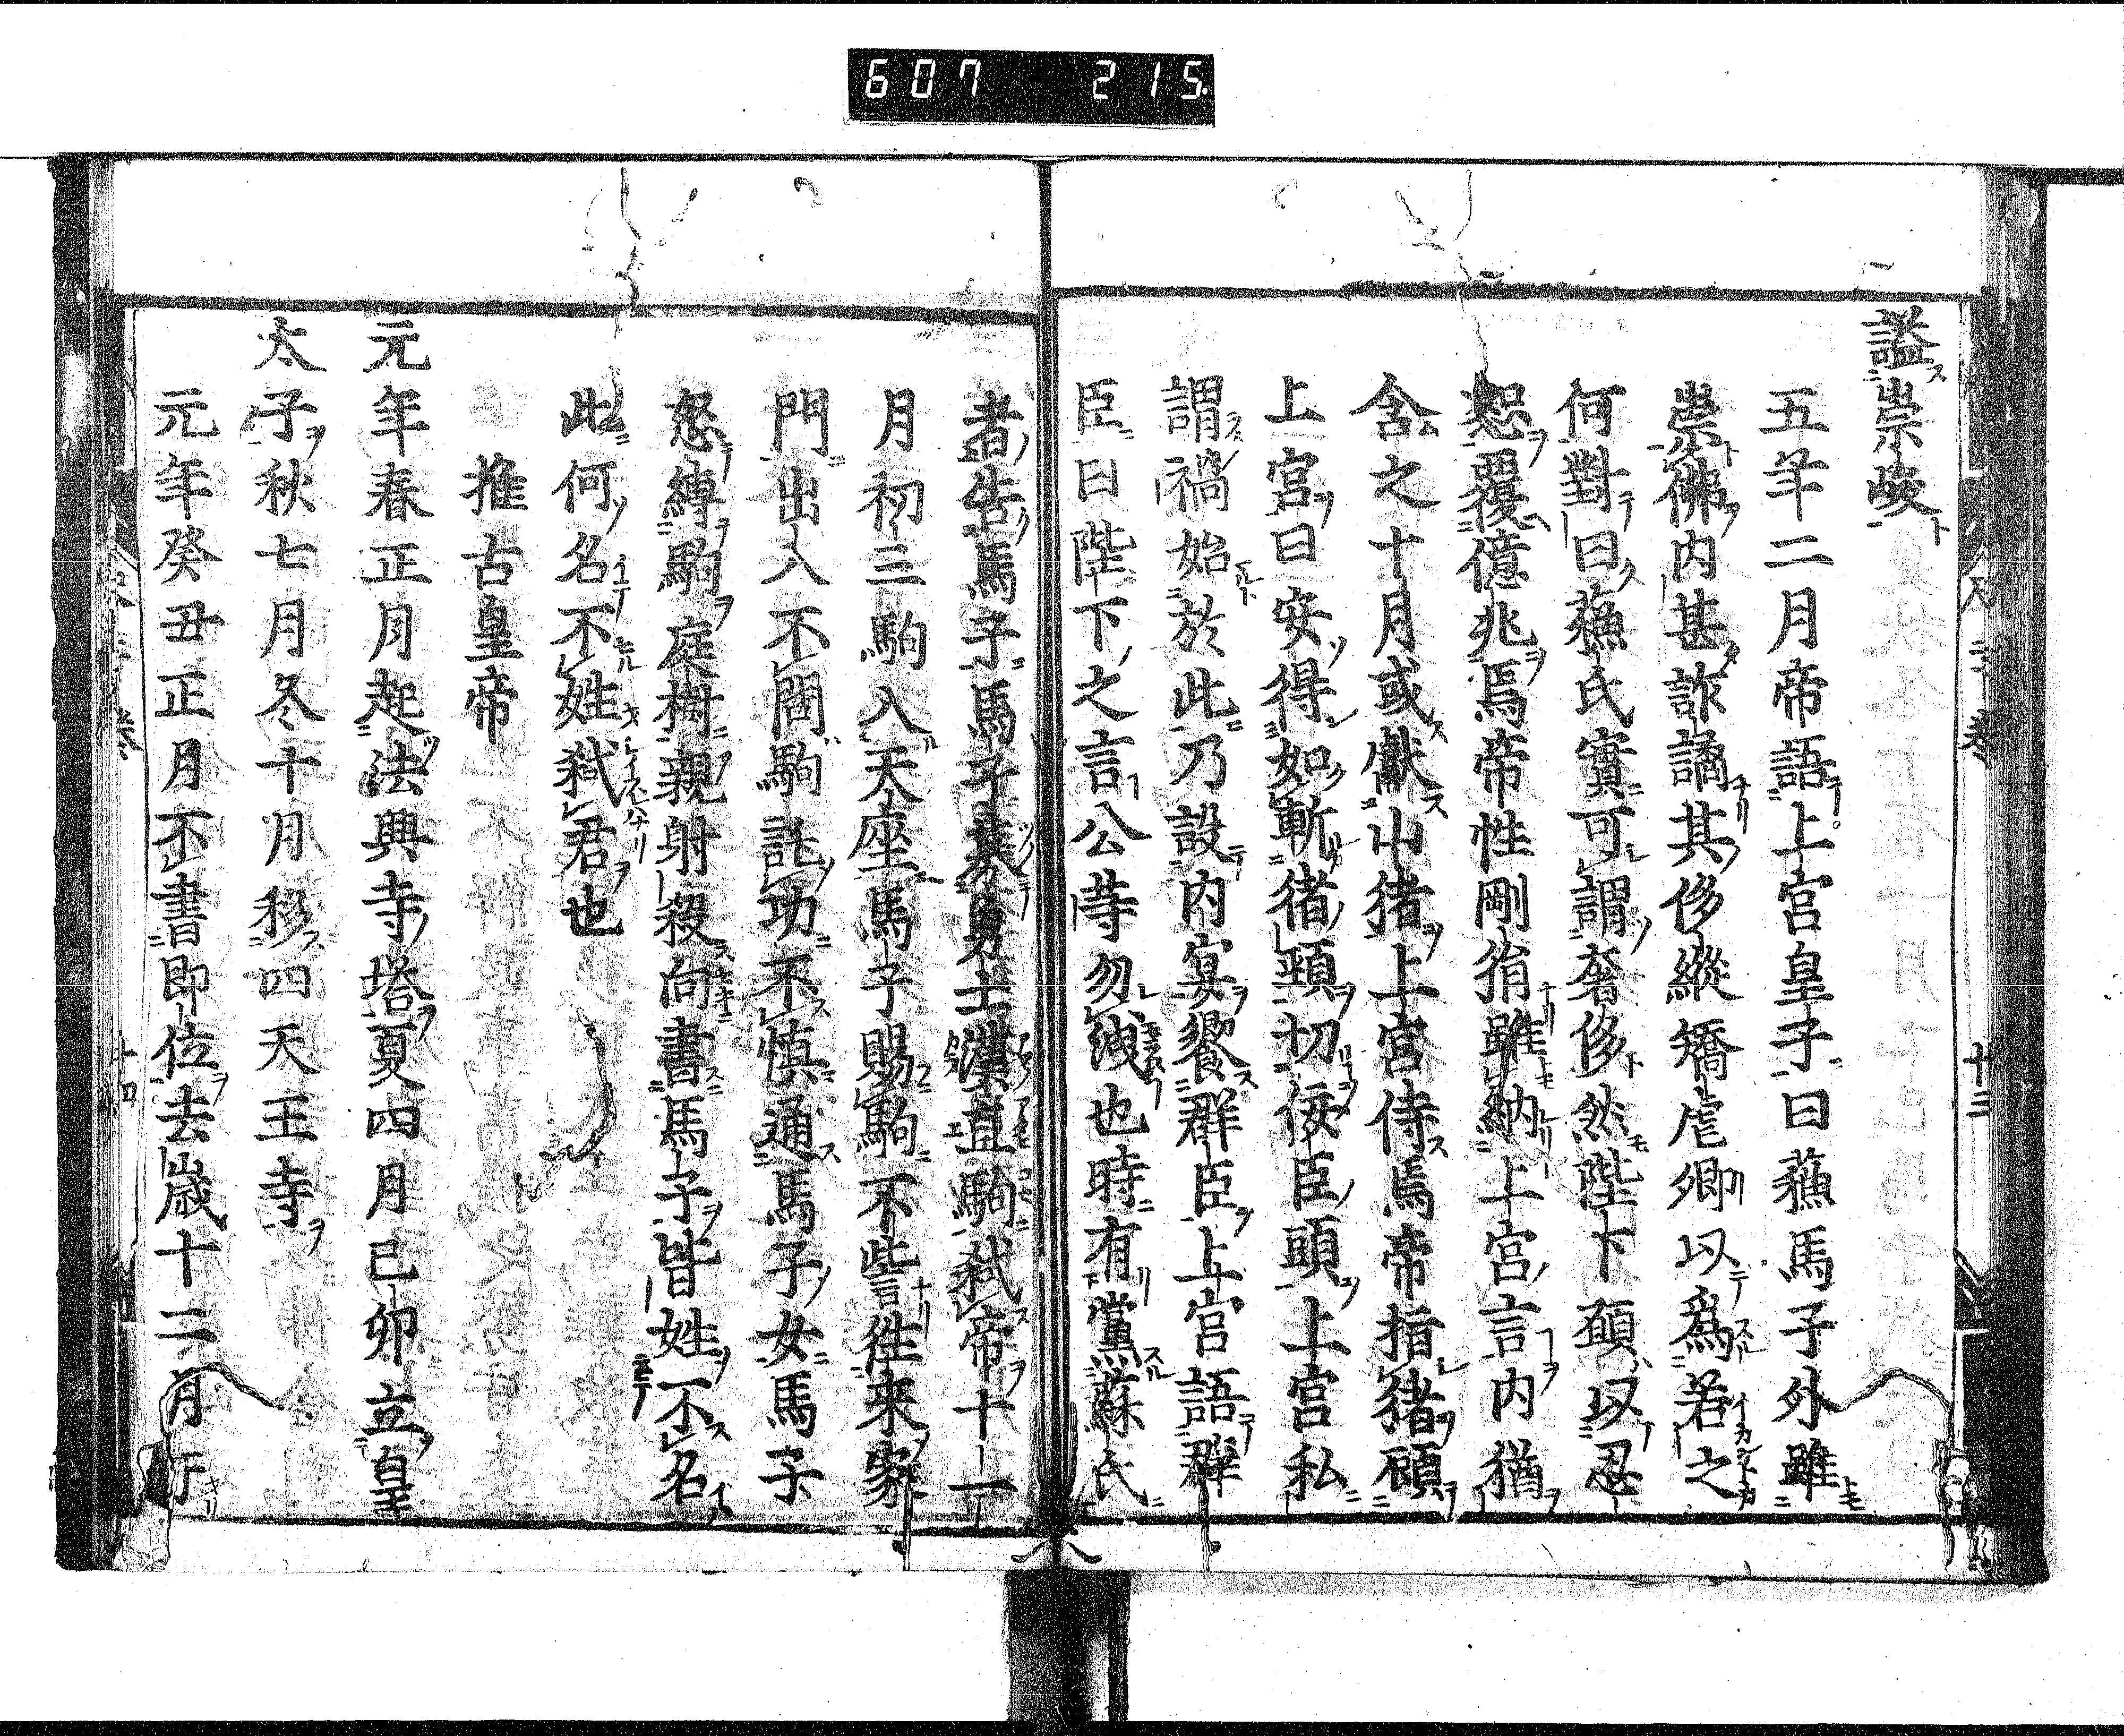 607 215.
謚崇峻
五年二月帝語上宮皇子曰蘓馬子外雖
崇佛内甚詐譎其侈縱矯虐卿以爲若之
何對曰蘓氏實可謂奢侈然陛下願以忍
恕覆億兆焉帝性剛狷雖納上宮言内猶
含之十月或獻山猪上宮侍焉帝指猪顧
上宮曰安得如斬猪頭切佞臣頭上宮私
謂禍始於此乃設内宴饗群臣上宮語群
臣曰陛下之言公等勿洩也時有黨蘇氏
者告馬子馬子募勇士漢直駒弑帝十一
月初三駒入天座馬子賜駒不訾往来家
門出入不閤駒託功不慎通馬子女馬子
怒縛駒庭樹親射殺向書馬子皆姓不名
此何名不姓弑君也
推古皇帝
元年春正月起法興寺塔夏四月己卯立皇
太子秋七月冬十月移四天王寺
元年癸丑正月不書即位去歳十二月
十三